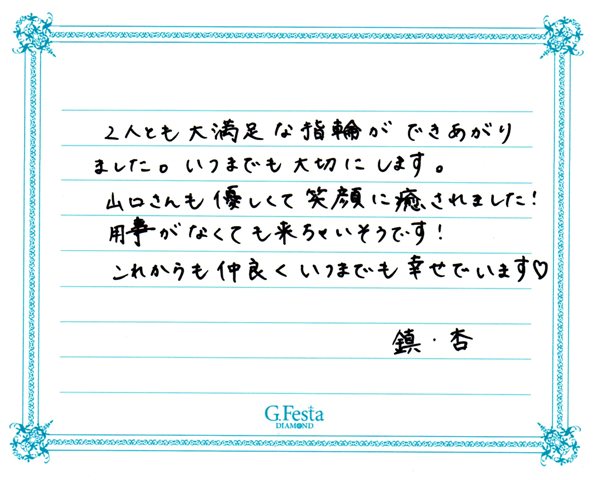 2人とも大満足な指輪ができあがり
ました。いつまでも大切にします。
山口さんも優しくて笑顔に癒されました!
用事がなくても来ちゃいそうです!
これからも仲良くいつまでも幸せでいます♡
鎮・杏
G.Festa
DIAMOND